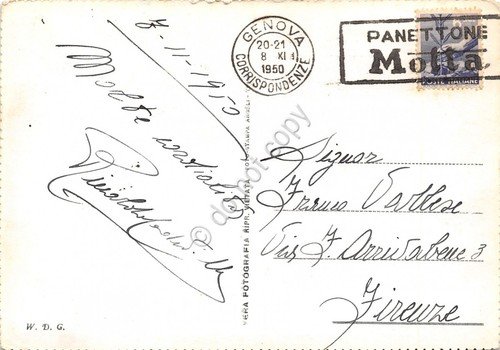 7-11-1950
Molte cordialità
GENOVA
20-21
8 XI
1950
CORRISPONDENZE
PANETTONE
Motta
POSTE ITALIANE
Signor
Franco
Via F. Arrivabene 3
Firenze
VERA FOTOGRAFIA RIPR. VIETATA
W. D. G.
© delpot copy